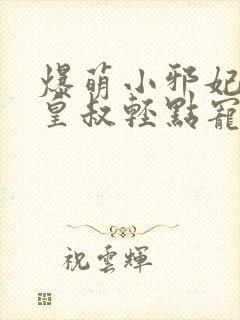 爆萌小邪妃
皇叔輕點寵
祝雲輝